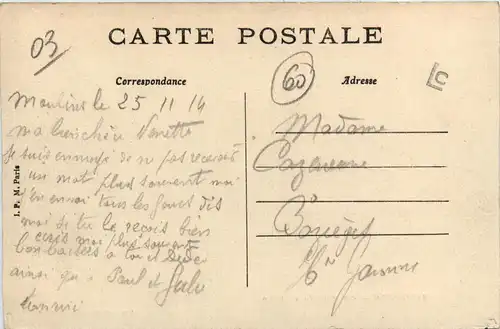 03
CARTE POSTALE
60
LC
Correspondance
Adresse
Moulins le 25 11 14
ma bien chère Nenette
Je suis ennuyé de ne pas recevoir
un mot plus souvent moi
j'en envoi tous les jours dis
moi si tu le reçois bien
ecris moi plus souvent
bon baisers a toi et Dédé
ainsi qu'a Paul et
Madame
Cazeneuve
à
Hte Garonne
I. P. M. Paris